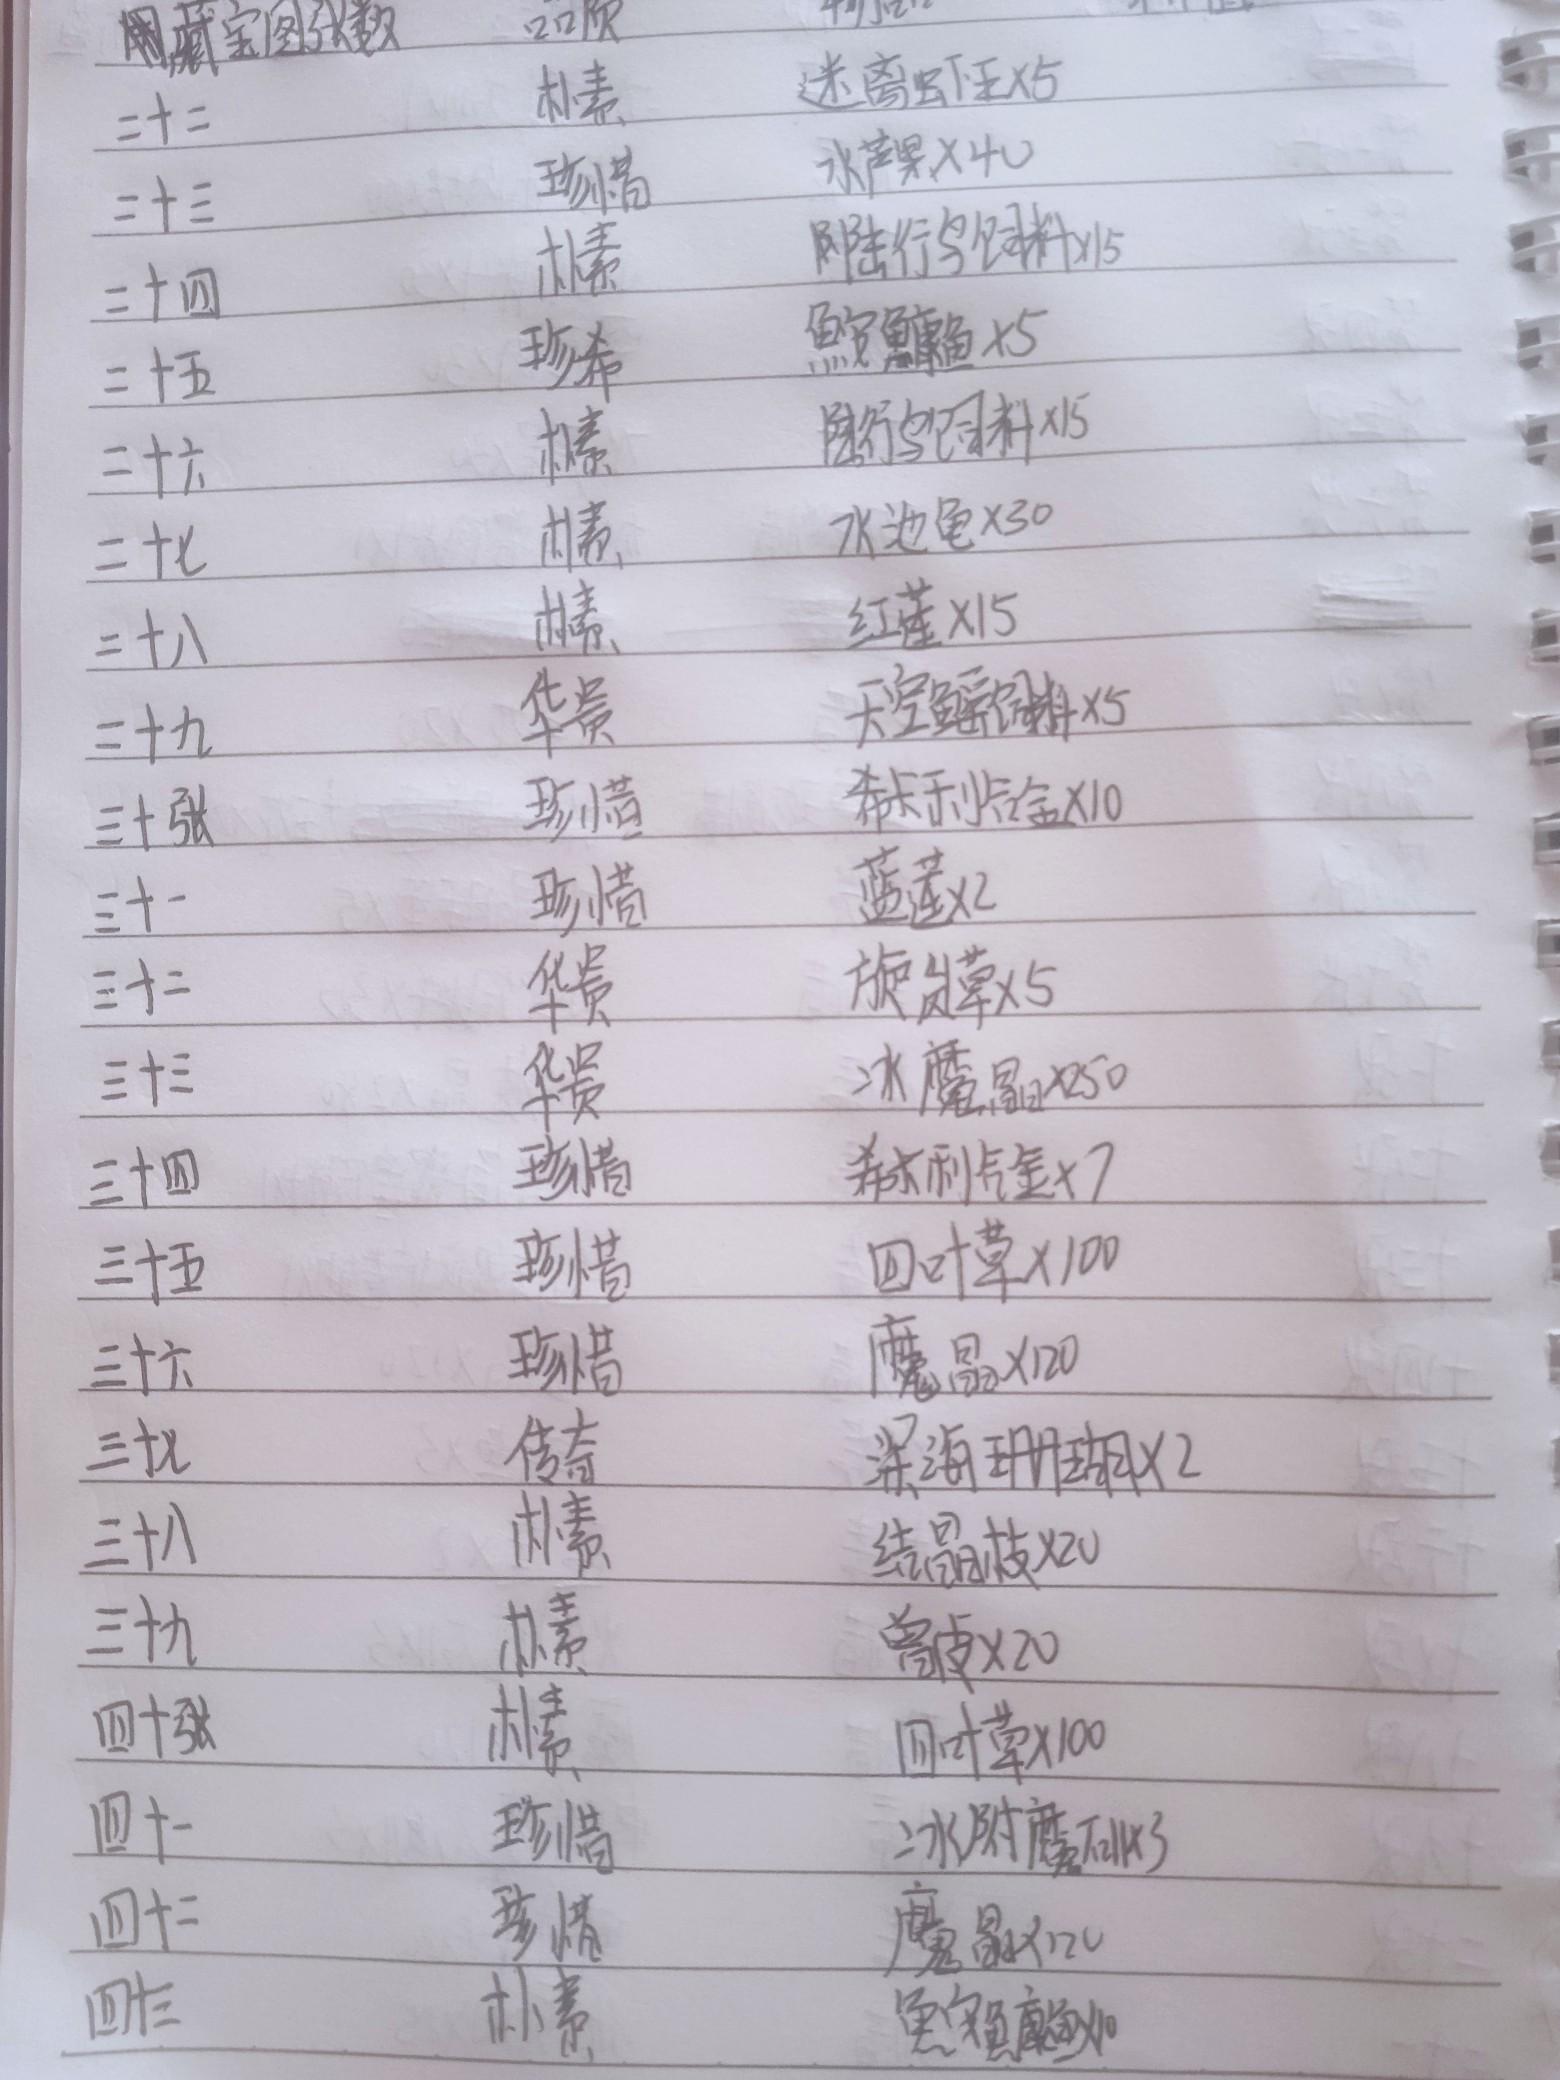 藏宝图张数 品质
二十二 朴素 迷离虾王x5
二十三 珍惜 水芦果x40
二十四 朴素 陆行鸟饲料x15
二十五 珍希 鮟鱇鱼x5
二十六 朴素 陆行鸟饲料x15
二十七 朴素 水池龟x30
二十八 朴素 红莲x15
二十九 华贵 天空鳐饲料x5
三十张 珍惜 希卡利合金x10
三十一 珍惜 蓝莲x2
三十二 华贵 旋贝草x5
三十三 华贵 冰魔晶x250
三十四 珍惜 希卡利合金x7
三十五 珍惜 四叶草x100
三十六 珍惜 魔晶x120
三十七 传奇 深海珊瑚x2
三十八 朴素 结晶枝x20
三十九 朴素 兽皮x20
四十张 朴素 四叶草x100
四十一 珍惜 冰附魔石IIx3
四十二 珍惜 魔晶x120
四十三 朴素 鮟鱇鱼x10